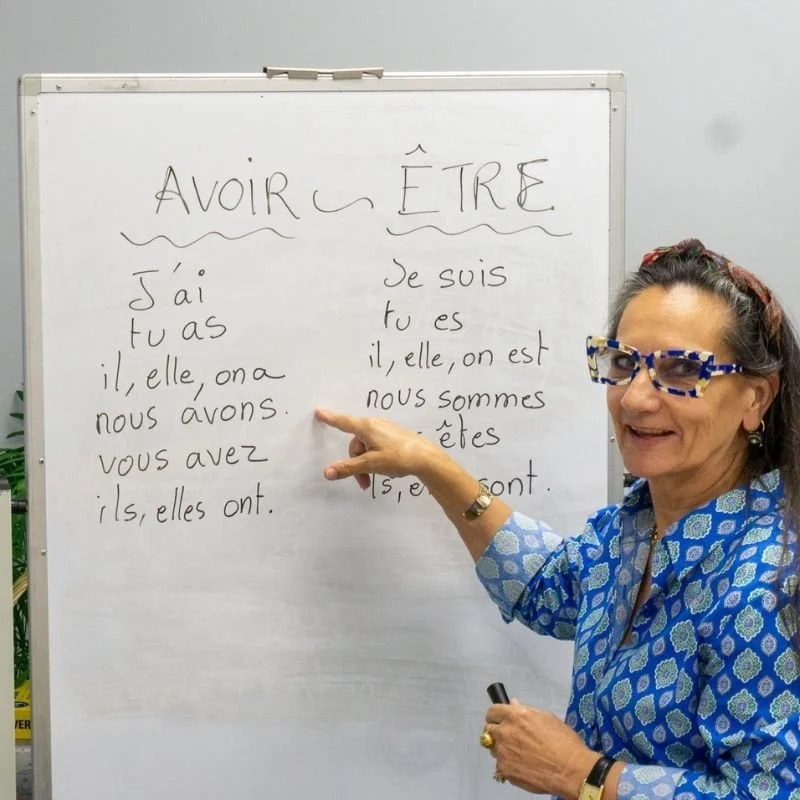 AVOIR ~ ÊTRE
J'ai
tu as
il, elle, on a
nous avons.
vous avez
ils, elles ont.
Je suis
tu es
il, elle, on est
nous sommes
êtes
sont.